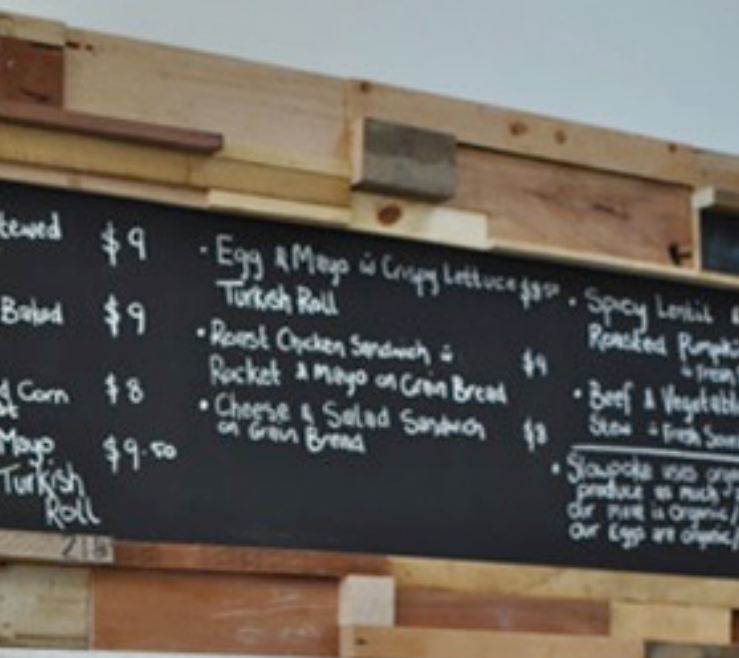 tewed $9
Baked $9
Corn $8
Mayo $9.50
Turkish
Roll
• Egg & Mayo w Crispy Lettuce $8.50
Turkish Roll
• Roast Chicken Sandwich w $9
Rocket & Mayo on Grain Bread
• Cheese & Salad Sandwich $8
on Grain Bread
• Spicy Lentil &
Roasted Pumpki
w Fresh
• Beef & Vegetabl
Stew w Fresh Sour
• Slowpoke uses orga
produce as much
our meat is organic/
our Eggs are organic/
218